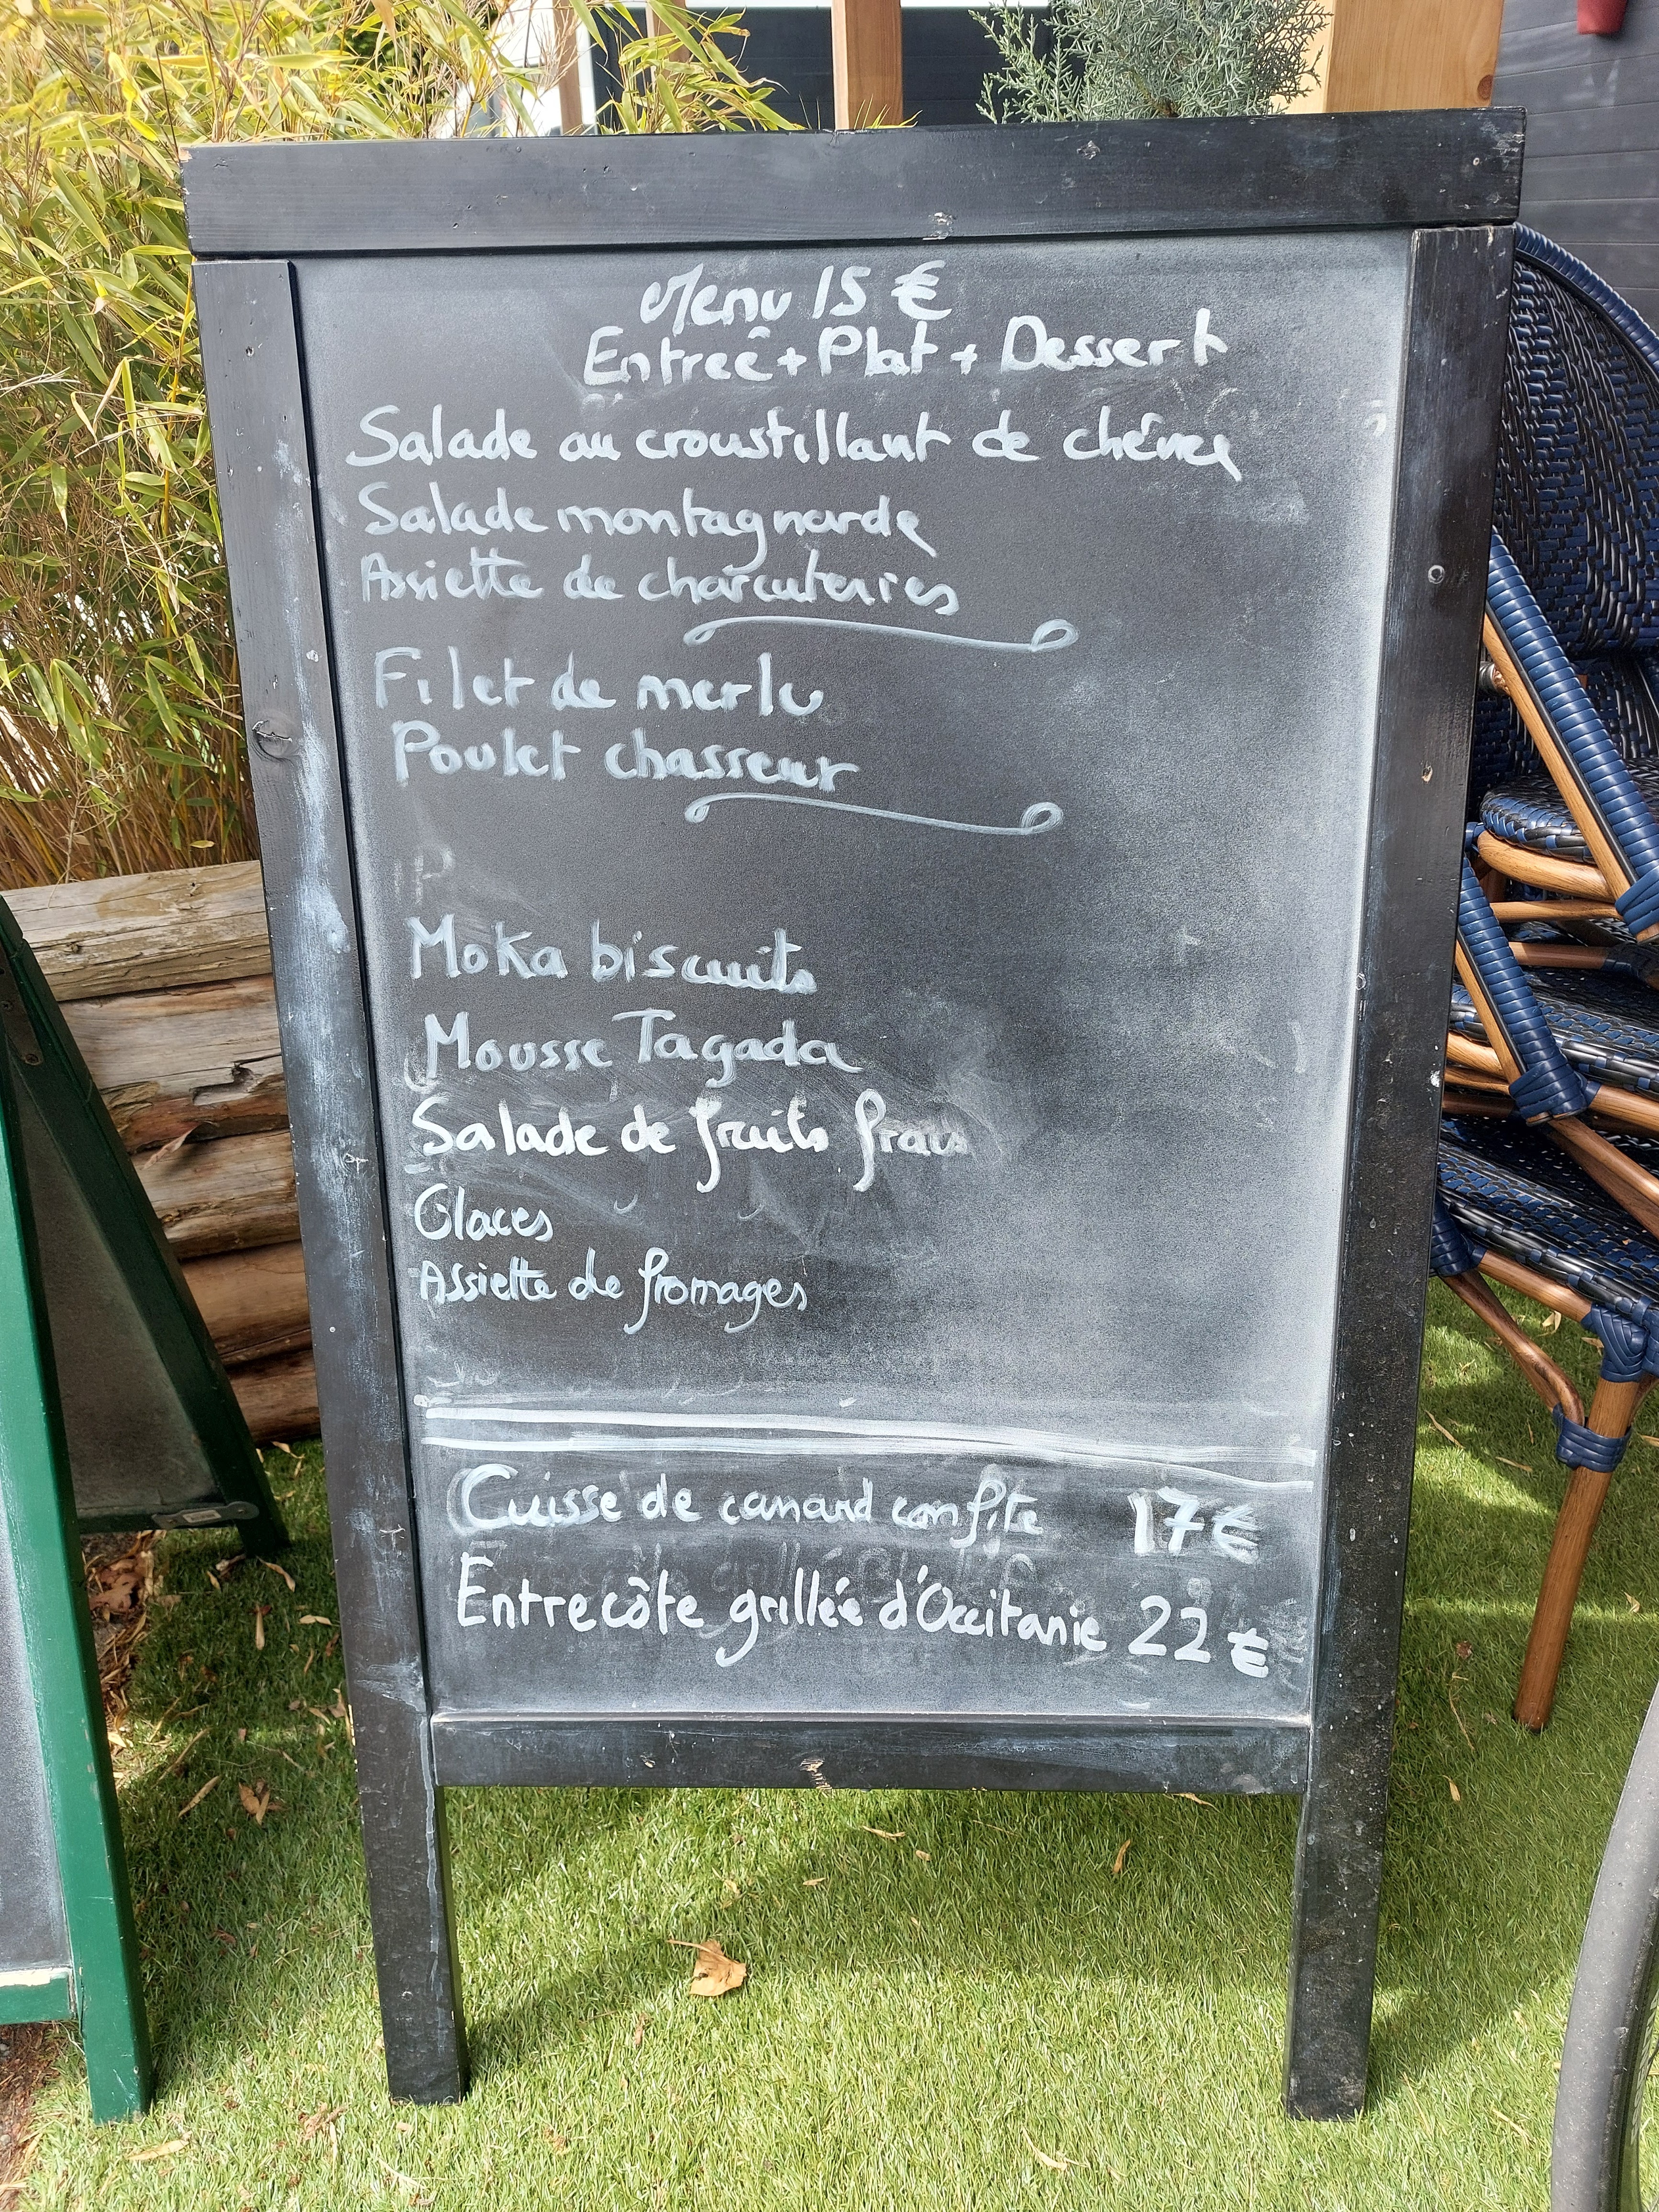 Menu 15 €
Entreê + Plat + Dessert
Salade au croustillant de chêvre
Salade montagnarde
Assiette de charcuteries
Filet de merlu
Poulet chasseur
Moka biscuits
Mousse Tagada
Salade de fruits frais
Glaces
Assiette de fromages
Cuisse de canard confite 17 €
Entrecôte grillée d'Occitanie 22 €